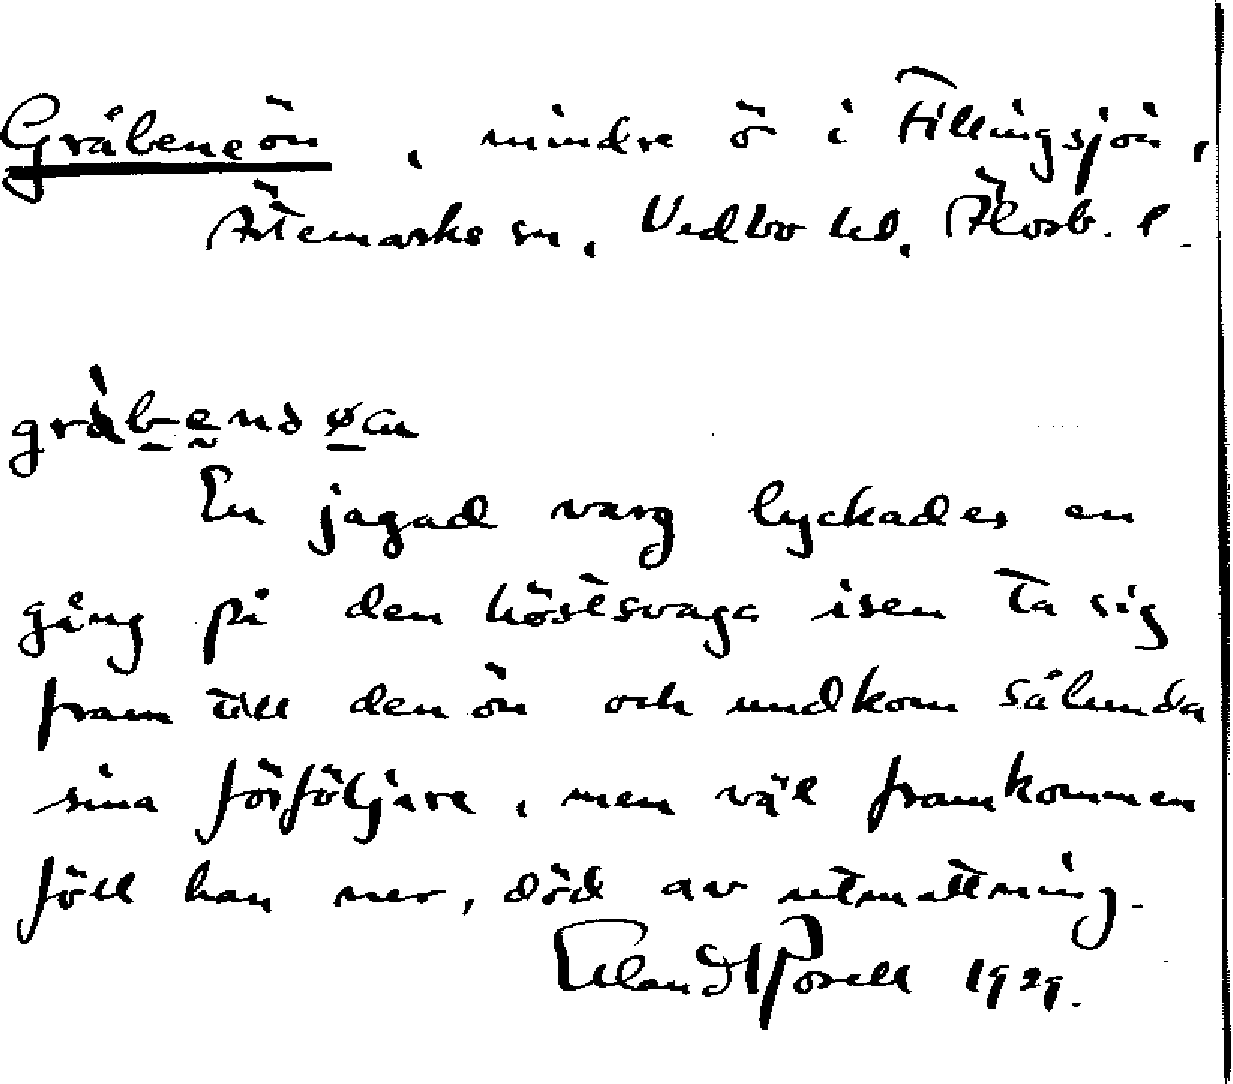 Gråbeneön, mindre ö i Tillingsjön,
Ärtemarks sn, Vedbo hd, Älvsb. l.
gråbenəøan
En jagad varg lyckades en
gång på den höstsvaga isen ta sig
fram till den ön och undkom sålunda
sina förföljare, men väl framkommen
föll han ner, död av utmattning.
Erland Hjorell 1929.